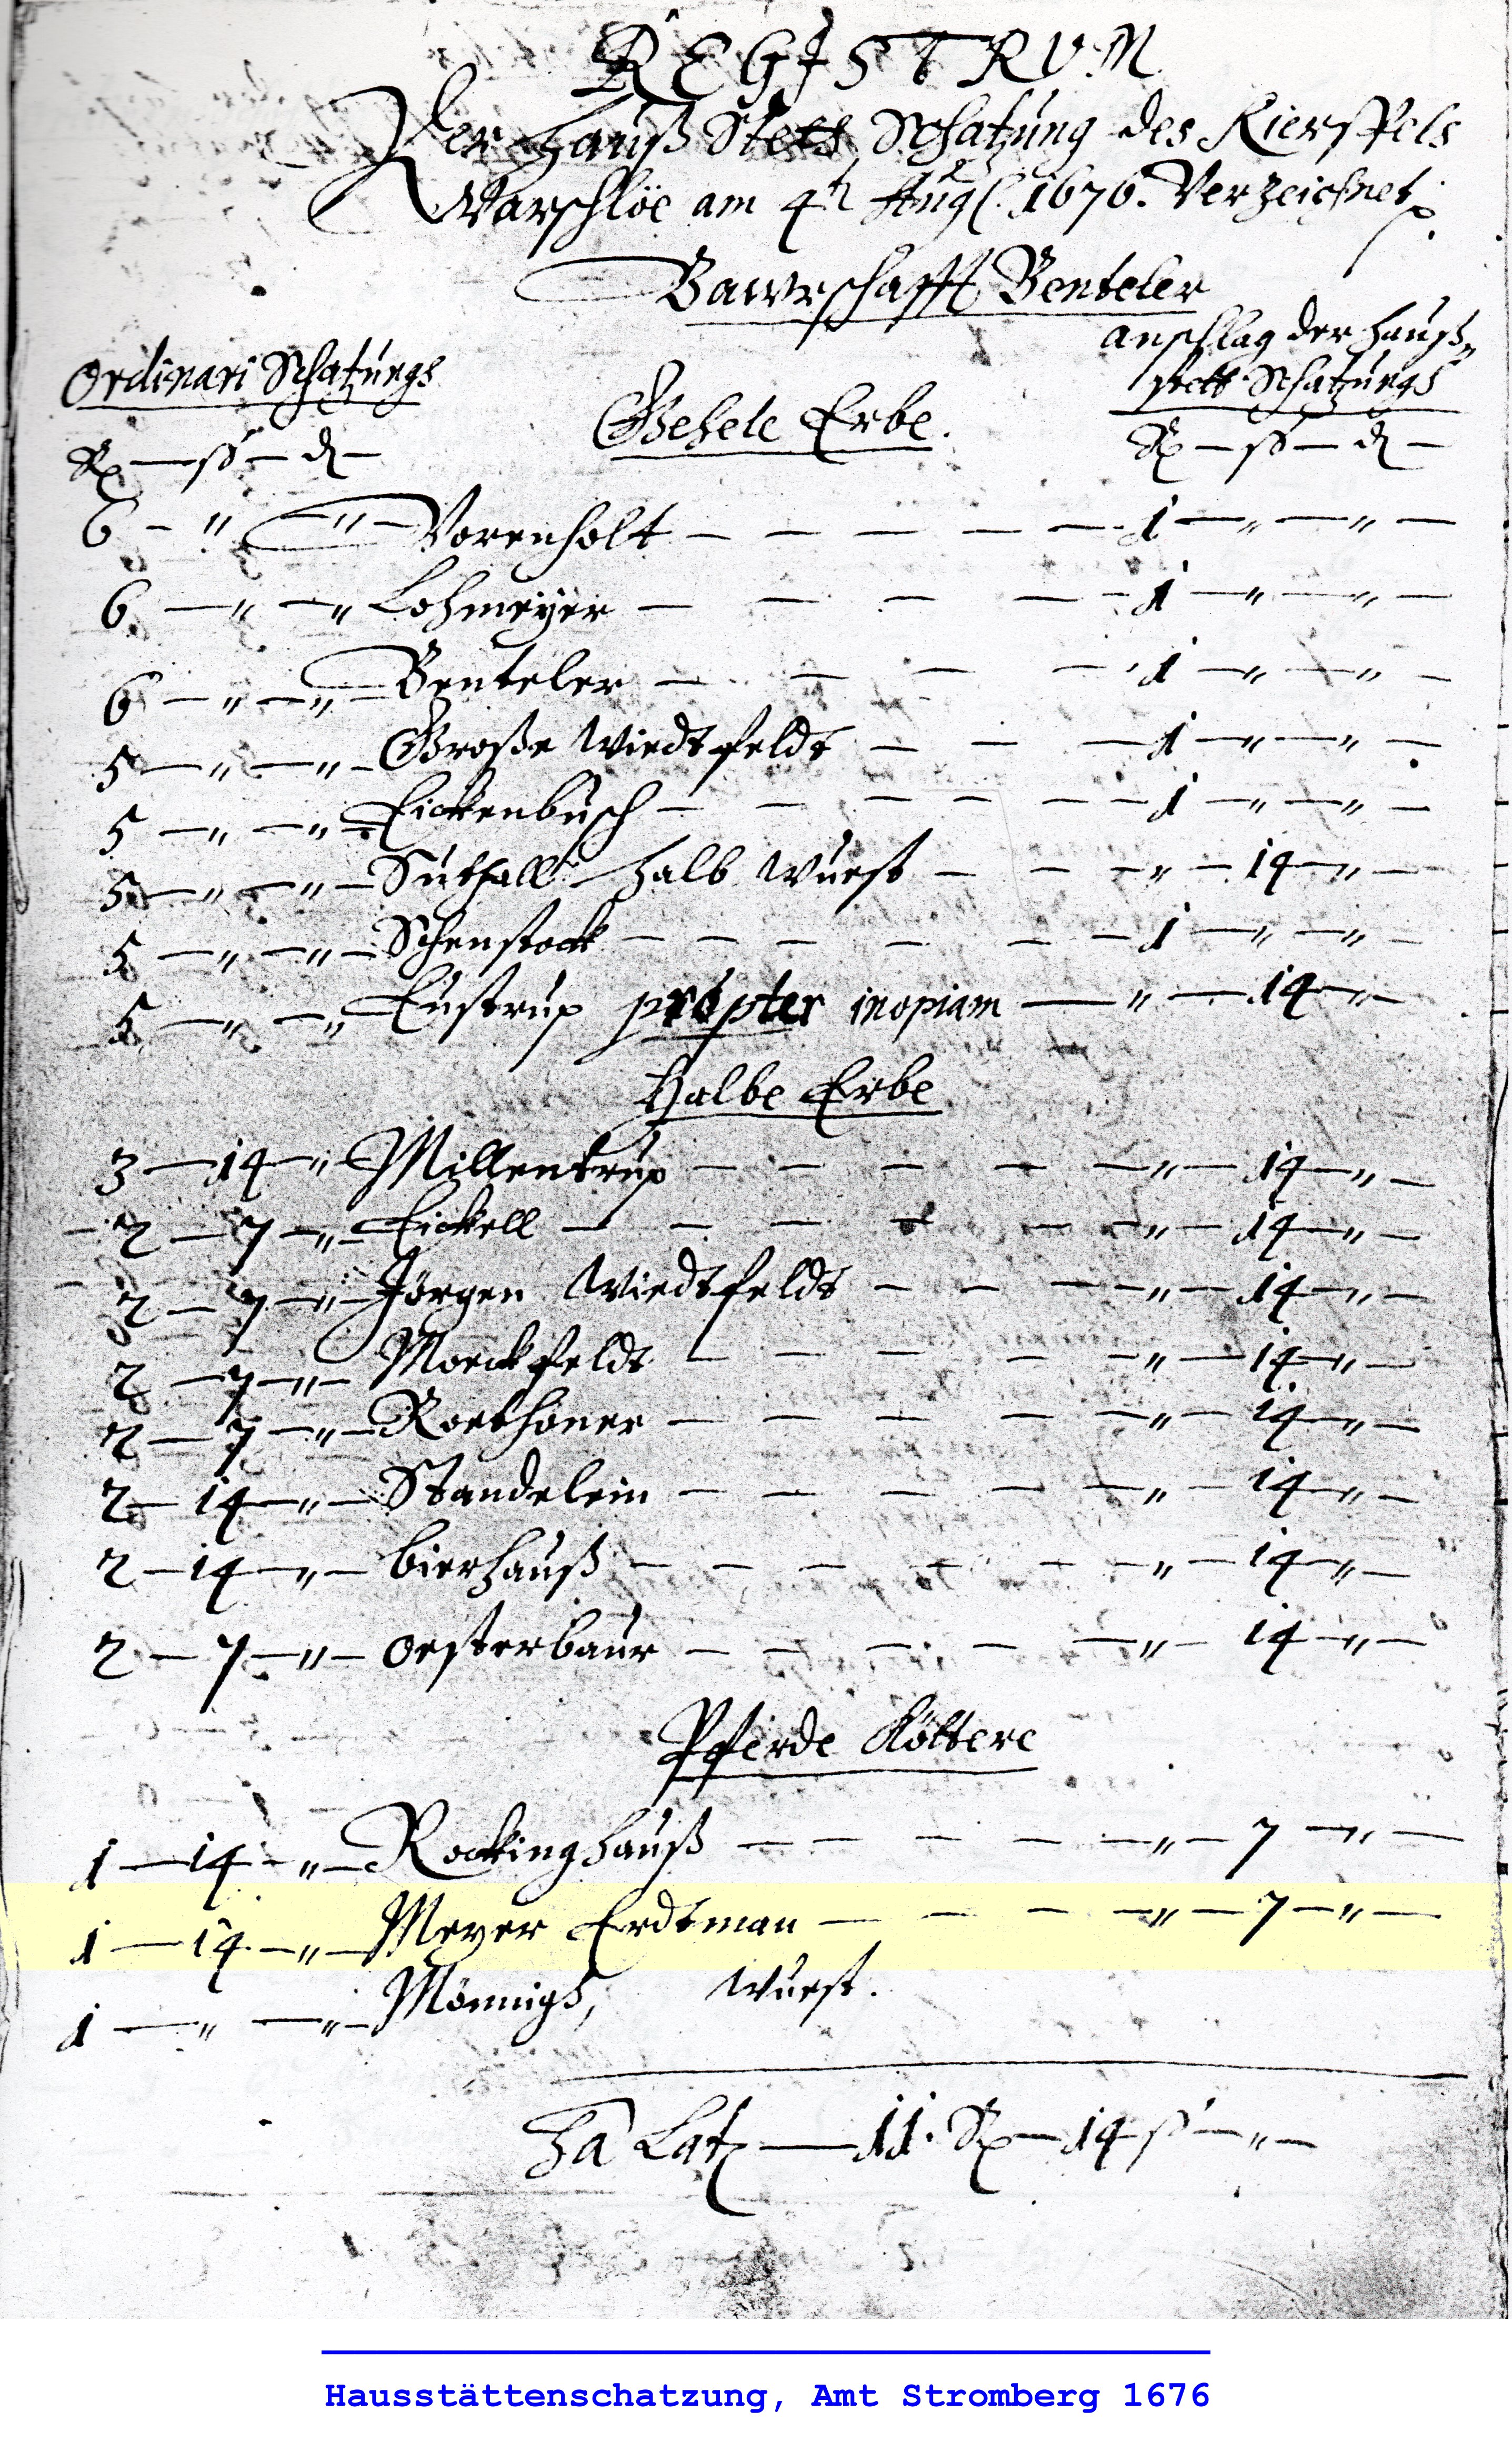 REGISTRUM
Der Hauß Stets Schatzung des Kierspels
Warschlöe am 4t Aug. 1676. Verzeichnet
Bawrschafft Benteler
Ordinari Schatzungs
anschlag der hauß„
stett Schatzungs
Gehele Erbe.
R — ß — d —
R — ß — d —
6 — " — " — Vorenholt — 1 — " — " —
6 — " — " Lohmeyer — 1 — " — " —
6 — " — " — Benteler — 1 — " — " —
5 — " — " — Große Wiedtfeldt — 1 — " — " —
5 — " — " — Eickenbusch — 1 — " — " —
5 — " — " — Suthall halb wuest — " — 14 — " —
5 — " — " — Schenstock — 1 — " — " —
5 — " — " Eustrup propter inopiam — " — 14 — " —
Halbe Erbe
3 — 14 — " Millentrup — " — 14 — " —
2 — 7 — " — Eickell — " — 14 — " —
2 — 7 — " — Jörgen Wiedtfeldt — " — 14 — " —
2 — 7 — " — Morckfeldt — " — 14 — " —
2 — 7 — " — Roethöner — " — 14 — " —
2 — 14 — " — Standelein — " — 14 — " —
2 — 14 — " — bierhauß — " — 14 — " —
2 — 7 — " — oesterbaur — " — 14 — " —
Pferde Köttere
1 — 14 — " — Rockinghauß — " — 7 — " —
1 — 14 — " — Meyer Erdtman — " — 7 — " —
1 — " — " — Mönnigh, wuest.
Latz — 11. R — 14 ß — " —
Hausstättenschatzung, Amt Stromberg 1676